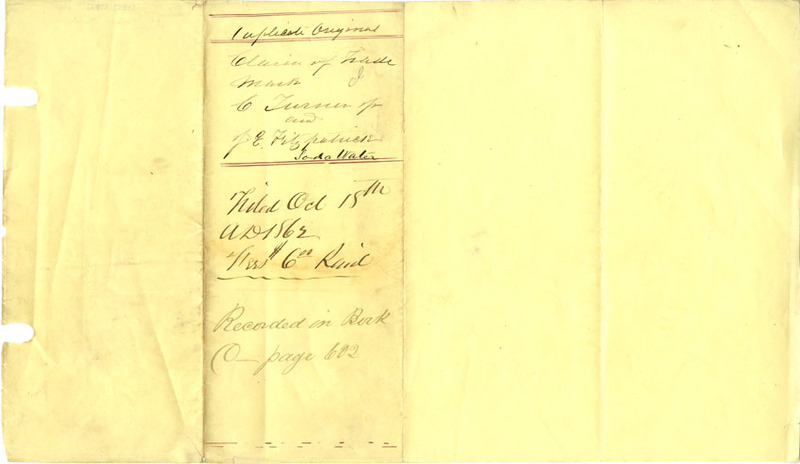 Duplicate Original
Claim of Trade
Mark
C Turner Jr
and
J E. Fitzpatrick
Soda Water
Filed Oct 18th
AD 1862
Fees $6 00 Paid
Recorded in Book
O— page 602